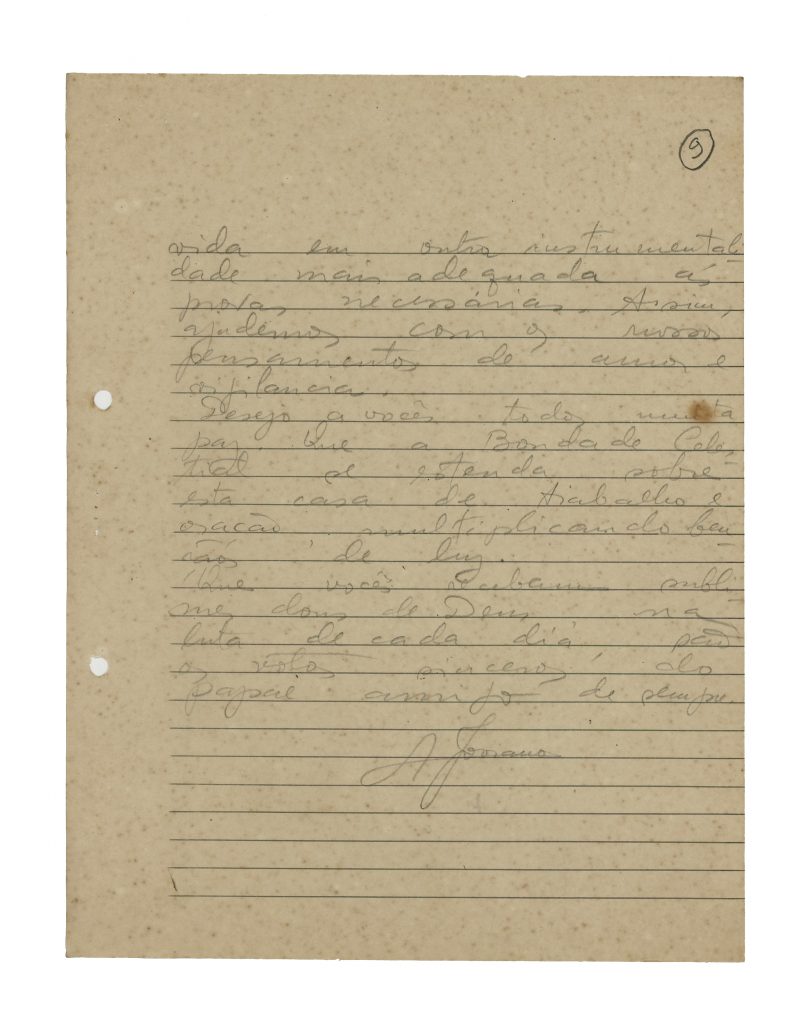 9
vida em outra instrumentali-
dade mais adequada ás
provas necessárias. Assim,
ajudemos com os nossos
pensamentos de amor e
vigilancia.
Desejo a vocês todos muita
paz. Que a Bondade Celes-
tial se estenda sobre
esta casa de trabalho e
oração multiplicando ben-
çãos de luz.
Que vocês recebam subli-
mes dons de Deus na
luta de cada dia, são
os votos sinceros do
papai amigo de sempre.
A. Joviano